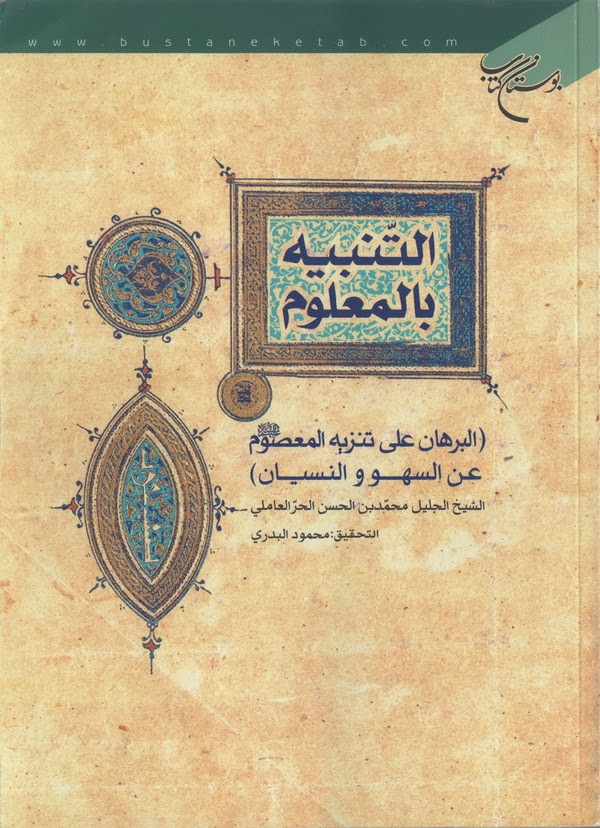 www.bustaneketab.com
بوستان کتاب
التّنبيه
بالمعلوم
(البرهان على تنزيه المعصوم
عن السهو و النسيان)
الشيخ الجليل محمّد بن الحسن الحرّ العاملي
التحقيق: محمود البدري